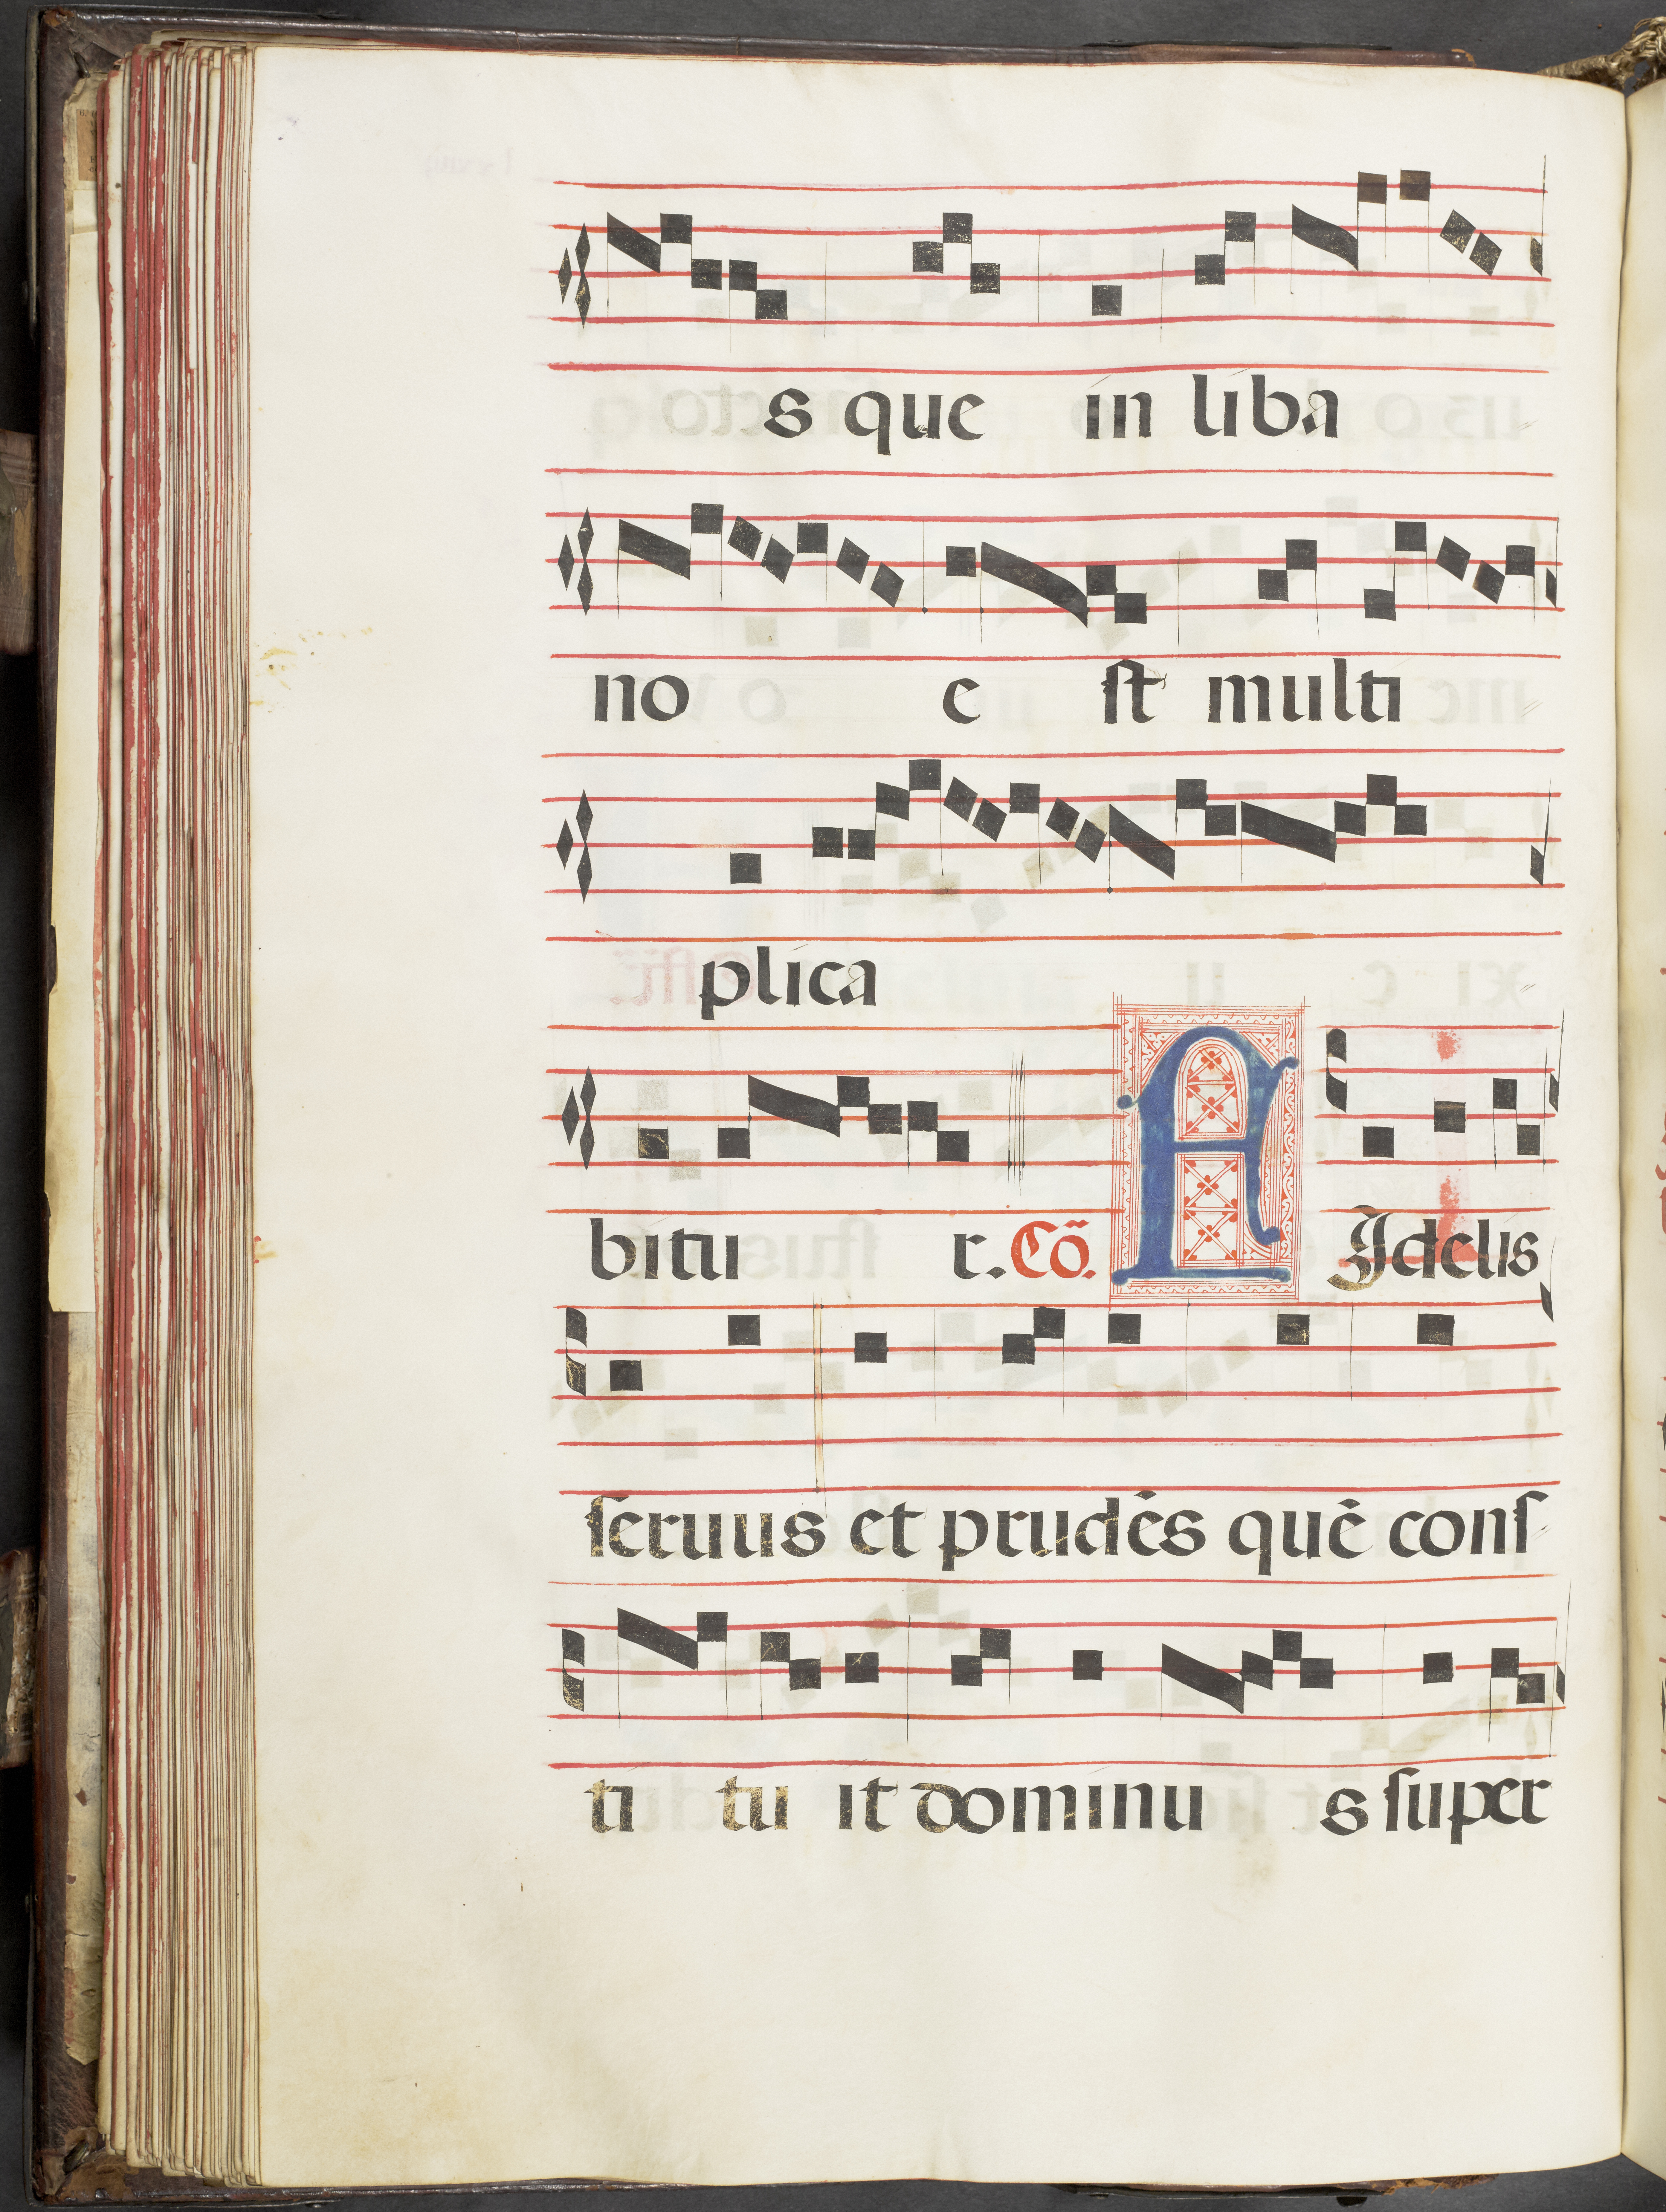 s que in liba
no e st multi
plica
bitu r. Cõ. FIdelis
seruus et prudẽs quẽ cons
ti tu it dominu s super